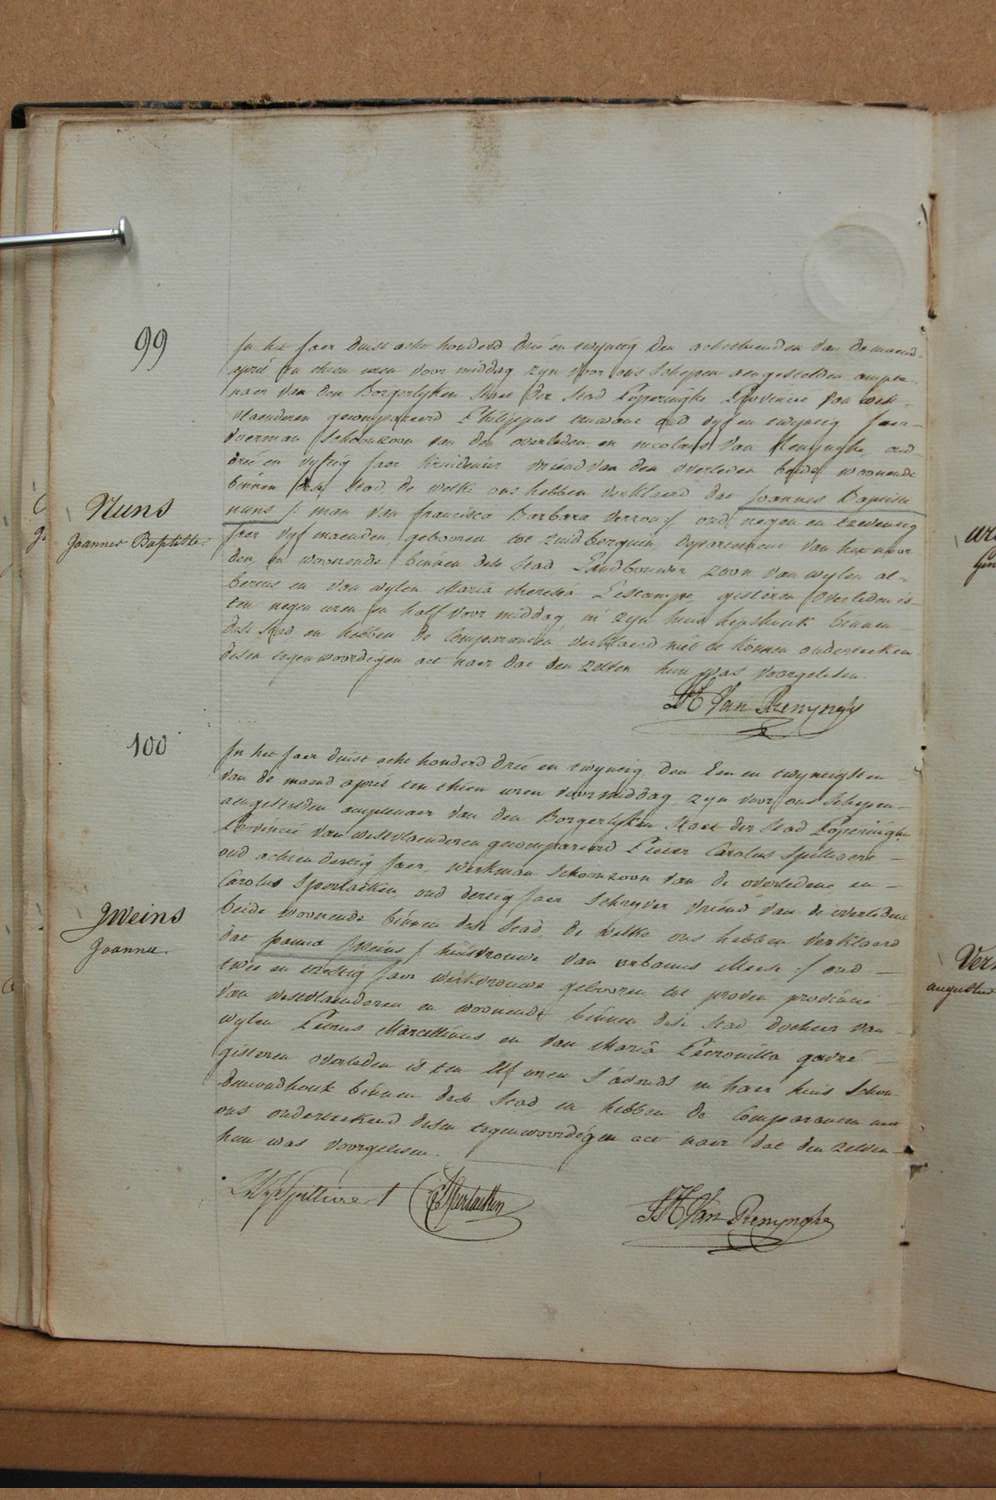 99
In het jaer duist acht honderd drie en twyntig den achthienden van de maend
april ten thien uren voor middag zyn voor ons Schepen aengestelden amptenaer
van den Borgerlyken Staet der Stad Poperinghe Provincie van West-
vlaenderen gecompareerd Philippus oud vyf en twyntig jaer
Schoonzoon van den overleden en nicolaus van Renynghe oud
drie en vyftig jaer kruidenier vriend van den overleden beide woonende
binnen dese Stad de welke ons hebben verklaerd dat Joannes Baptiste
Nuns
nuns /: man van francisca Barbara :/ oud negen en tzeventig
Joannes Baptiste
jaer vyf maenden gebooren tot zuidberquin departement van het noor
den en woonende binnen dese Stad Landbouwer zoon van wylen al-
bertus en van wylen Maria theresia Lestampe gisteren overleden is
ten negen uren en half voor middag in zyn huis binnen
dese Stad en hebben de Comparanten verklaerd niet te konnen ondertecken
desen tegenwoordigen act naer dat den zelven hun was voorgelesen
Van Renynghe
100
In het jaer duist acht honderd drie en twyntig den Een en twyntigsten
van de maend april ten thien uren voormiddag zyn voor ons Schepen
aengestelden amptenaer van den Borgerlyken Staet der Stad Poperinghe
Provincie van Westvlaenderen gecompareerd Pieter Carolus Spillioere
oud achtendertig jaer, werkman Schoonzoon van de overledene en
Carolus Sperlaeken oud dertig jaer Schryver vriend van de overledene
beide woonende binnen dese Stad de welke ons hebben verklaerd
Jweins
Joanna
dat joanna jweins /: huisvrouwe van urbanus :/ oud
twee en tzestig jaer werkvrouwe gebooren tot proven provincie
van Westvlaenderen en woonende binnen dese Stad dochter van
wylen Petrus Marcellinus en van Maria Petronilla
gisteren overleden is ten Elf uren s'avonds in haer huis
binnen dese Stad en hebben de Comparanten met
ons onderteekend desen tegenwoordigen act naer dat den zelven
hun was voorgelesen.
Sperlaeken
Van Renynghe
augustus